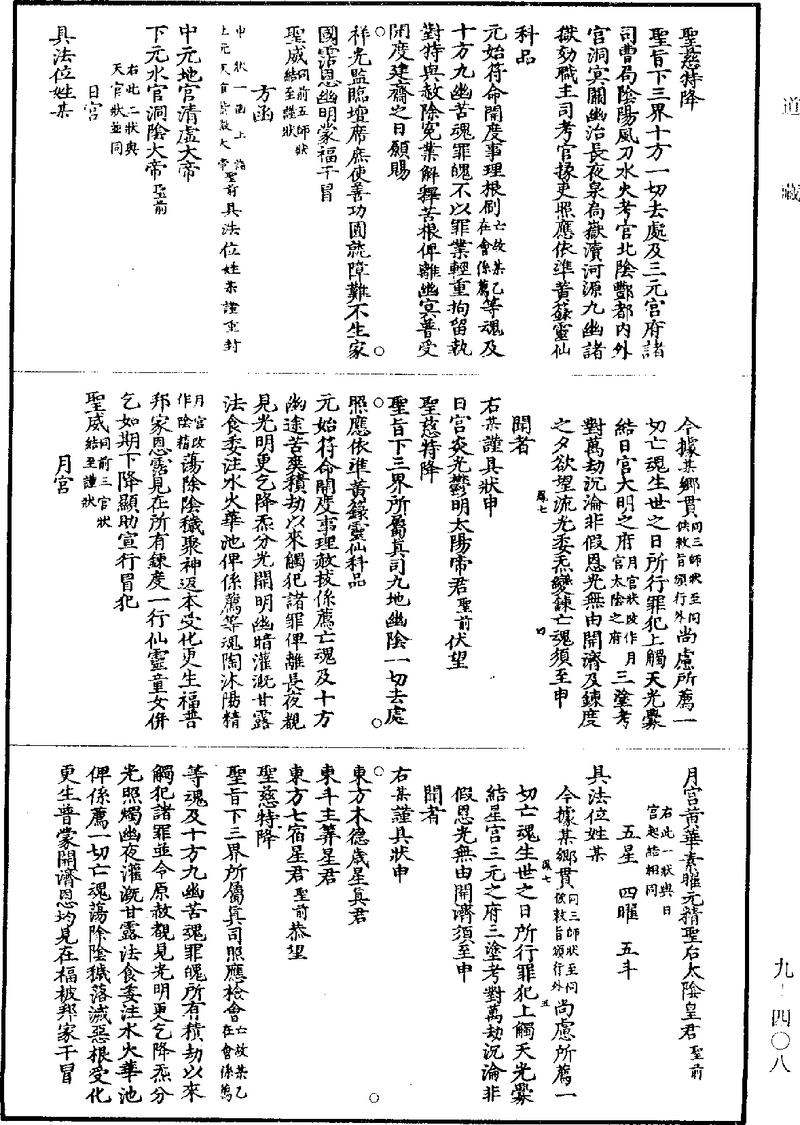 道藏
聖慈特降
聖旨下三界十方一切去處及三元宮府諸
司曹局陰陽風刀水火考官北陰酆都內外
官洞冥關幽治長夜泉扃嶽瀆河源九幽諸
獄劾職主司考官掾吏照應依準黃籙靈仙
科品
元始符命開度事理根刷亡故某乙在會係薦等魂及
十方九幽苦魂罪魄不以罪業輕重拘留執
對特與赦除冤業解釋苦根俾離幽冥普受
開度建齋之日願賜
祥光監臨壇席庶使善功圓就障難不生家
國霑恩幽明蒙福干冒
聖威同前五師狀結至謹狀
方函
中狀一函上詣上元天官賜赦大帝聖前具法位姓某謹重封
中元地官清虛大帝
下元水官洞陰大帝聖前
右此二狀與天官狀並同
日宮
具法位姓某
今據某鄉貫同三師狀至同伏敕旨頒行外尚慮所薦一
切亡魂生世之日所行罪犯上觸天光釁
結日宮大明之府月官狀改作月官太陰之府三塗考
對萬劫沉淪非假恩光無由開濟及鍊度
之夕欲望流光委炁變鍊亡魂須至申
聞者
鳳七
四
右某謹具狀申
日宮炎光鬱明太陽帝君聖前伏望
聖慈特降
聖旨下三界所屬真司九地幽陰一切去處
照應依準黃籙靈仙科品
元始符命開度事理赦拔係薦亡魂及十方
幽途苦爽積劫以來觸犯諸罪俾離長夜覩
見光明更乞降炁分光開明幽暗灌溉甘露
法食委注水火華池俾係薦等魂陶沐陽精
月官改作陰精蕩除陰穢聚神返本受化更生福普
邦家恩霑見在所有鍊度一行仙靈童女併
乞如期下降顯助宣行冒犯
聖威同前三官狀結至謹狀
月宮
月宮黃華素曜元精聖后太陰皇君聖前
右此一狀與日宮起結相同
五星 四曜 五斗
具法位姓某
今據某鄉貫同三師狀至同伏敕旨頒行外尚慮所薦一
鳳七
五
切亡魂生世之日所行罪犯上觸天光釁
結星宮三元之府三塗考對萬劫沉淪非
假恩光無由開濟須至申
聞者
右某謹具狀申
東方木德歲星真君
東斗主算星君
東方七宿星君聖前恭望
聖慈特降
聖旨下三界所屬真司照應檢會亡故某乙在會係薦
等魂及十方九幽苦魂罪魄所有積劫以來
觸犯諸罪並令原赦覩見光明更乞降炁分
光照燭幽夜灌溉甘露法食委注水火華池
俾係薦一切亡魂蕩除陰穢落滅惡根受化
更生普蒙開濟恩均見在福被邦家干冒
九－四〇八